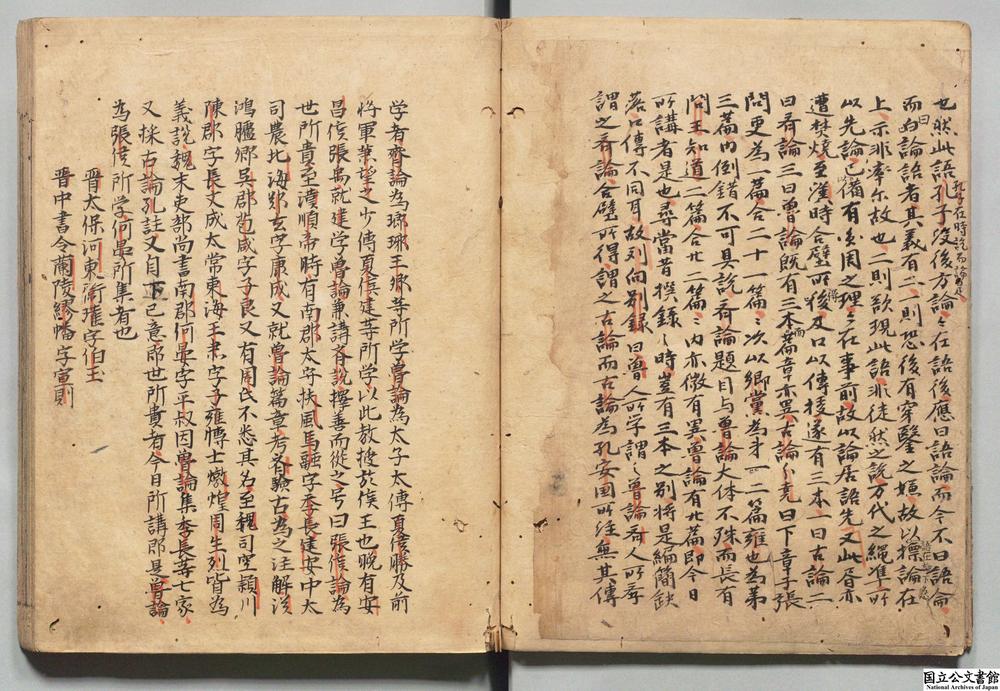 也然此語孔子没後方論〻在語後應曰語論而今不曰語論
而曰論語者其義有二一則恐後有穿鑿之嫌故以摽論在
上示非率尔故也二則欲現此語非徒然之説万代之繩準所
以先論已備有圓周之理〻在事前故以論居語先又此書亦
遭焚燒至漢時合壁所得及口以傳授遂有三本一曰古論二
曰斉論三曰魯論既有三本而篇章亦異古論分堯曰下章子張
問更為一篇合二十一篇〻次以郷黨為才二篇雍也為第
三篇内倒錯不可具說斉論題目与魯論大体不殊而長有
問王知道二篇合廿二篇〻内亦微有異魯論有廿篇即今日
所講者是也尋當昔撰録〻時豈有三本之別將是編簡缺
落口傳不同耳故列向別録曰魯人所学謂〻魯論斉人所学
謂之斉論合壁所得謂之古論而古論為孔安国所注無其傳
学者斉論為瑯琊王卿等所学魯論為太子太傅夏侯勝及前
將軍蕭望之少傅夏侯建等所学以此教授於侯王也晩有安
昌侯張禹就建学魯論兼講斉説擇善而從之号曰張侯論為
世所貴至漢順帝時有南郡太守扶風馬融字季長建安中大
司農北海鄭玄字康成又就魯論篇章考斉驗古為之注解漢
鴻臚卿呉郡苞咸字子良又有周氏不悉其名至魏司空頴川
陳郡字長文成太常東海王肅字子雍博士燉煌周生列皆為
義説魏末吏部尚書南郡何晏字平叔因魯論集季長等七家
又採古論孔註又自下己意即世所貴者今日所講即是魯論
為張侯所学何晏所集者也
晋太保河東衛瓘字伯玉
晋中書令蘭陵繆播字宣則
国立公文書館
National Archives of Japan